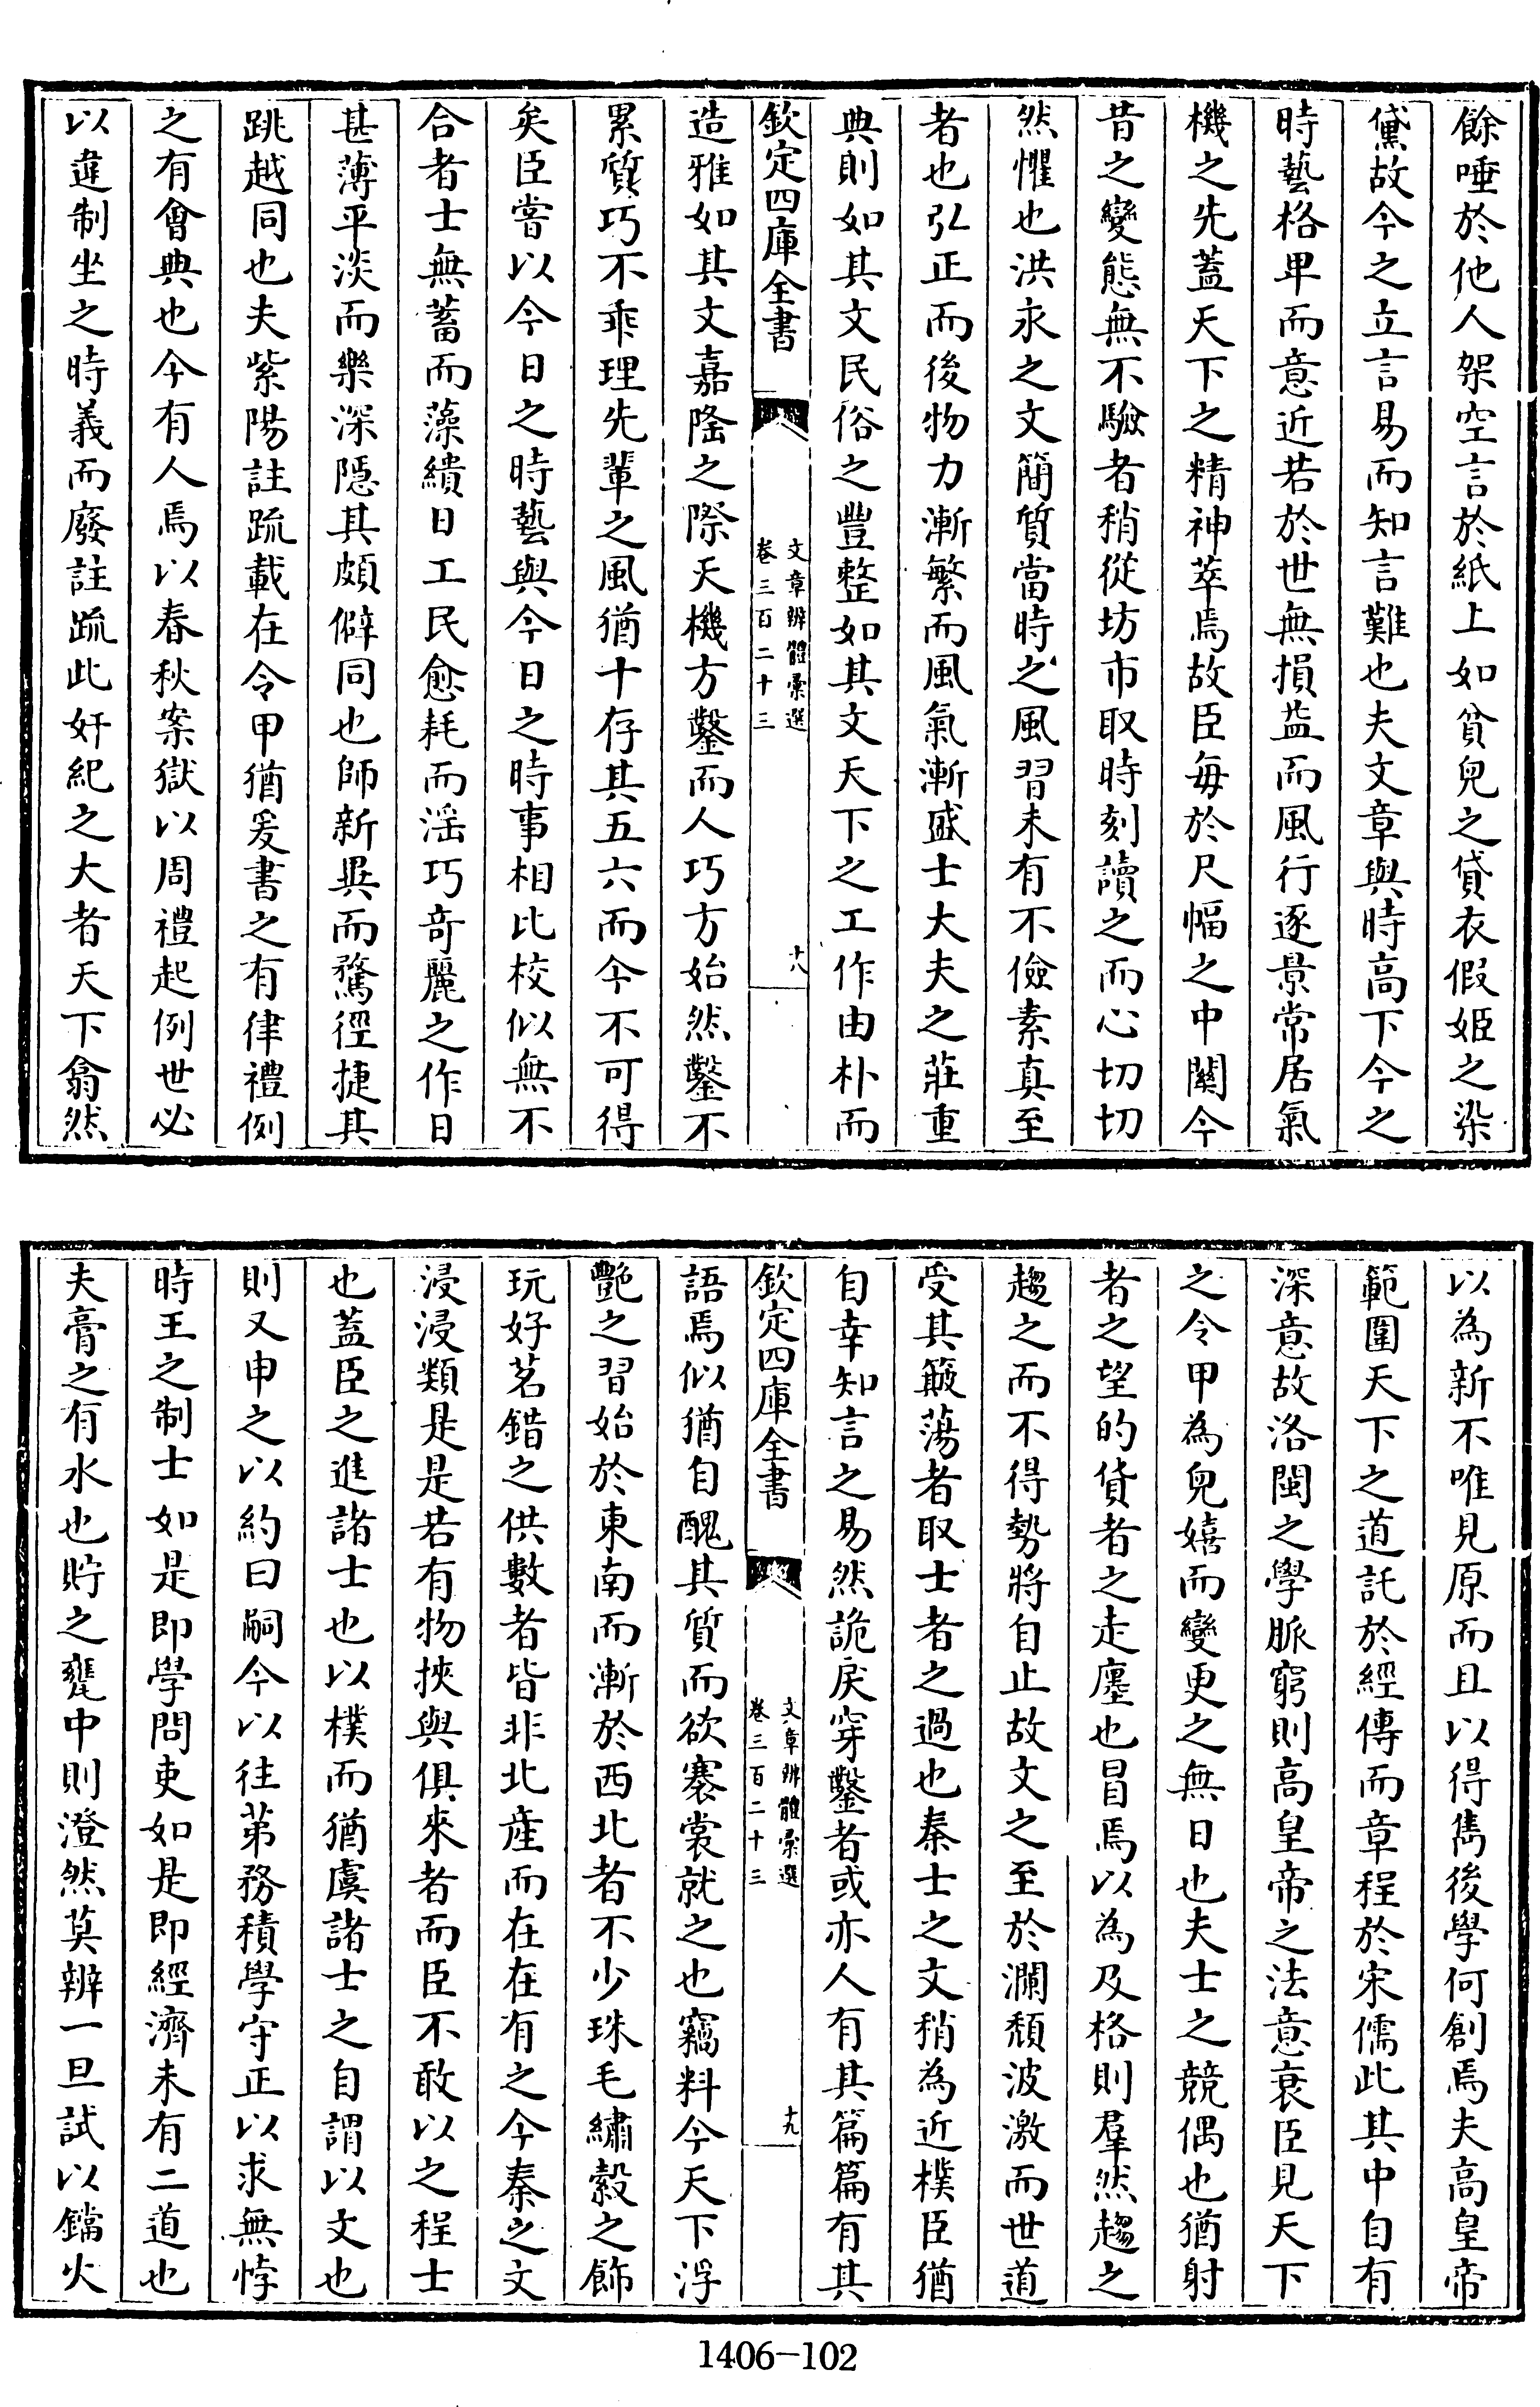 餘唾於他人架空言於紙上如貧兒之貸衣假姬之染
黛故今之立言易而知言難也夫文章與時高下今之
時藝格卑而意近若於世無損益而風行逐景常居氣
機之先蓋天下之精神萃焉故臣每於尺幅之中闚今
昔之變態無不驗者稍從坊市取時刻讀之而心切切
然懼也洪永之文簡質當時之風習未有不儉素真至
者也弘正而後物力漸繁而風氣漸盛士大夫之莊重
典則如其文民俗之豐整如其文天下之工作由朴而
欽定四庫全書
文章辨體彙選
卷三百二十三
十八
造雅如其文嘉隆之際天機方鑿而人巧方始然鑿不
累質巧不乖理先輩之風猶十存其五六而今不可得
矣臣嘗以今日之時藝與今日之時事相比校似無不
合者士無蓄而藻繢日工民愈耗而淫巧奇麗之作日
甚薄平淡而樂深隱其頗僻同也師新異而騖徑捷其
跳越同也夫紫陽註疏載在令甲猶爰書之有律禮例
之有會典也今有人焉以春秋案獄以周禮起例世必
以違制坐之時義而廢註疏此奸紀之大者天下翕然
以為新不唯見原而且以得雋後學何創焉夫高皇帝
範圍天下之道託於經傳而章程於宋儒此其中自有
深意故洛閩之學脈窮則高皇帝之法意衰臣見天下
之令甲為兒嬉而變更之無日也夫士之競偶也猶射
者之望的貨者之走廛也冒焉以為及格則羣然趨之
趨之而不得勢將自止故文之至於瀾頹波激而世道
受其簸蕩者取士者之過也秦士之文稍為近樸臣猶
自幸知言之易然詭戾穿鑿者或亦人有其篇篇有其
欽定四庫全書
文章辨體彙選
卷三百二十三
十九
語焉似猶自醜其質而欲褰裳就之也竊料今天下浮
艷之習始於東南而漸於西北者不少珠毛繡縠之飾
玩好茗錯之供數者皆非北產而在在有之今秦之文
浸浸類是是若有物挾與俱來者而臣不敢以之程士
也蓋臣之進諸士也以樸而猶虞諸士之自謂以文也
則又申之以約曰嗣今以往第務積學守正以求無悖
時王之制士如是即學問吏如是即經濟未有二道也
夫膏之有水也貯之甕中則澄然莫辨一旦試以鐺火
1406-102